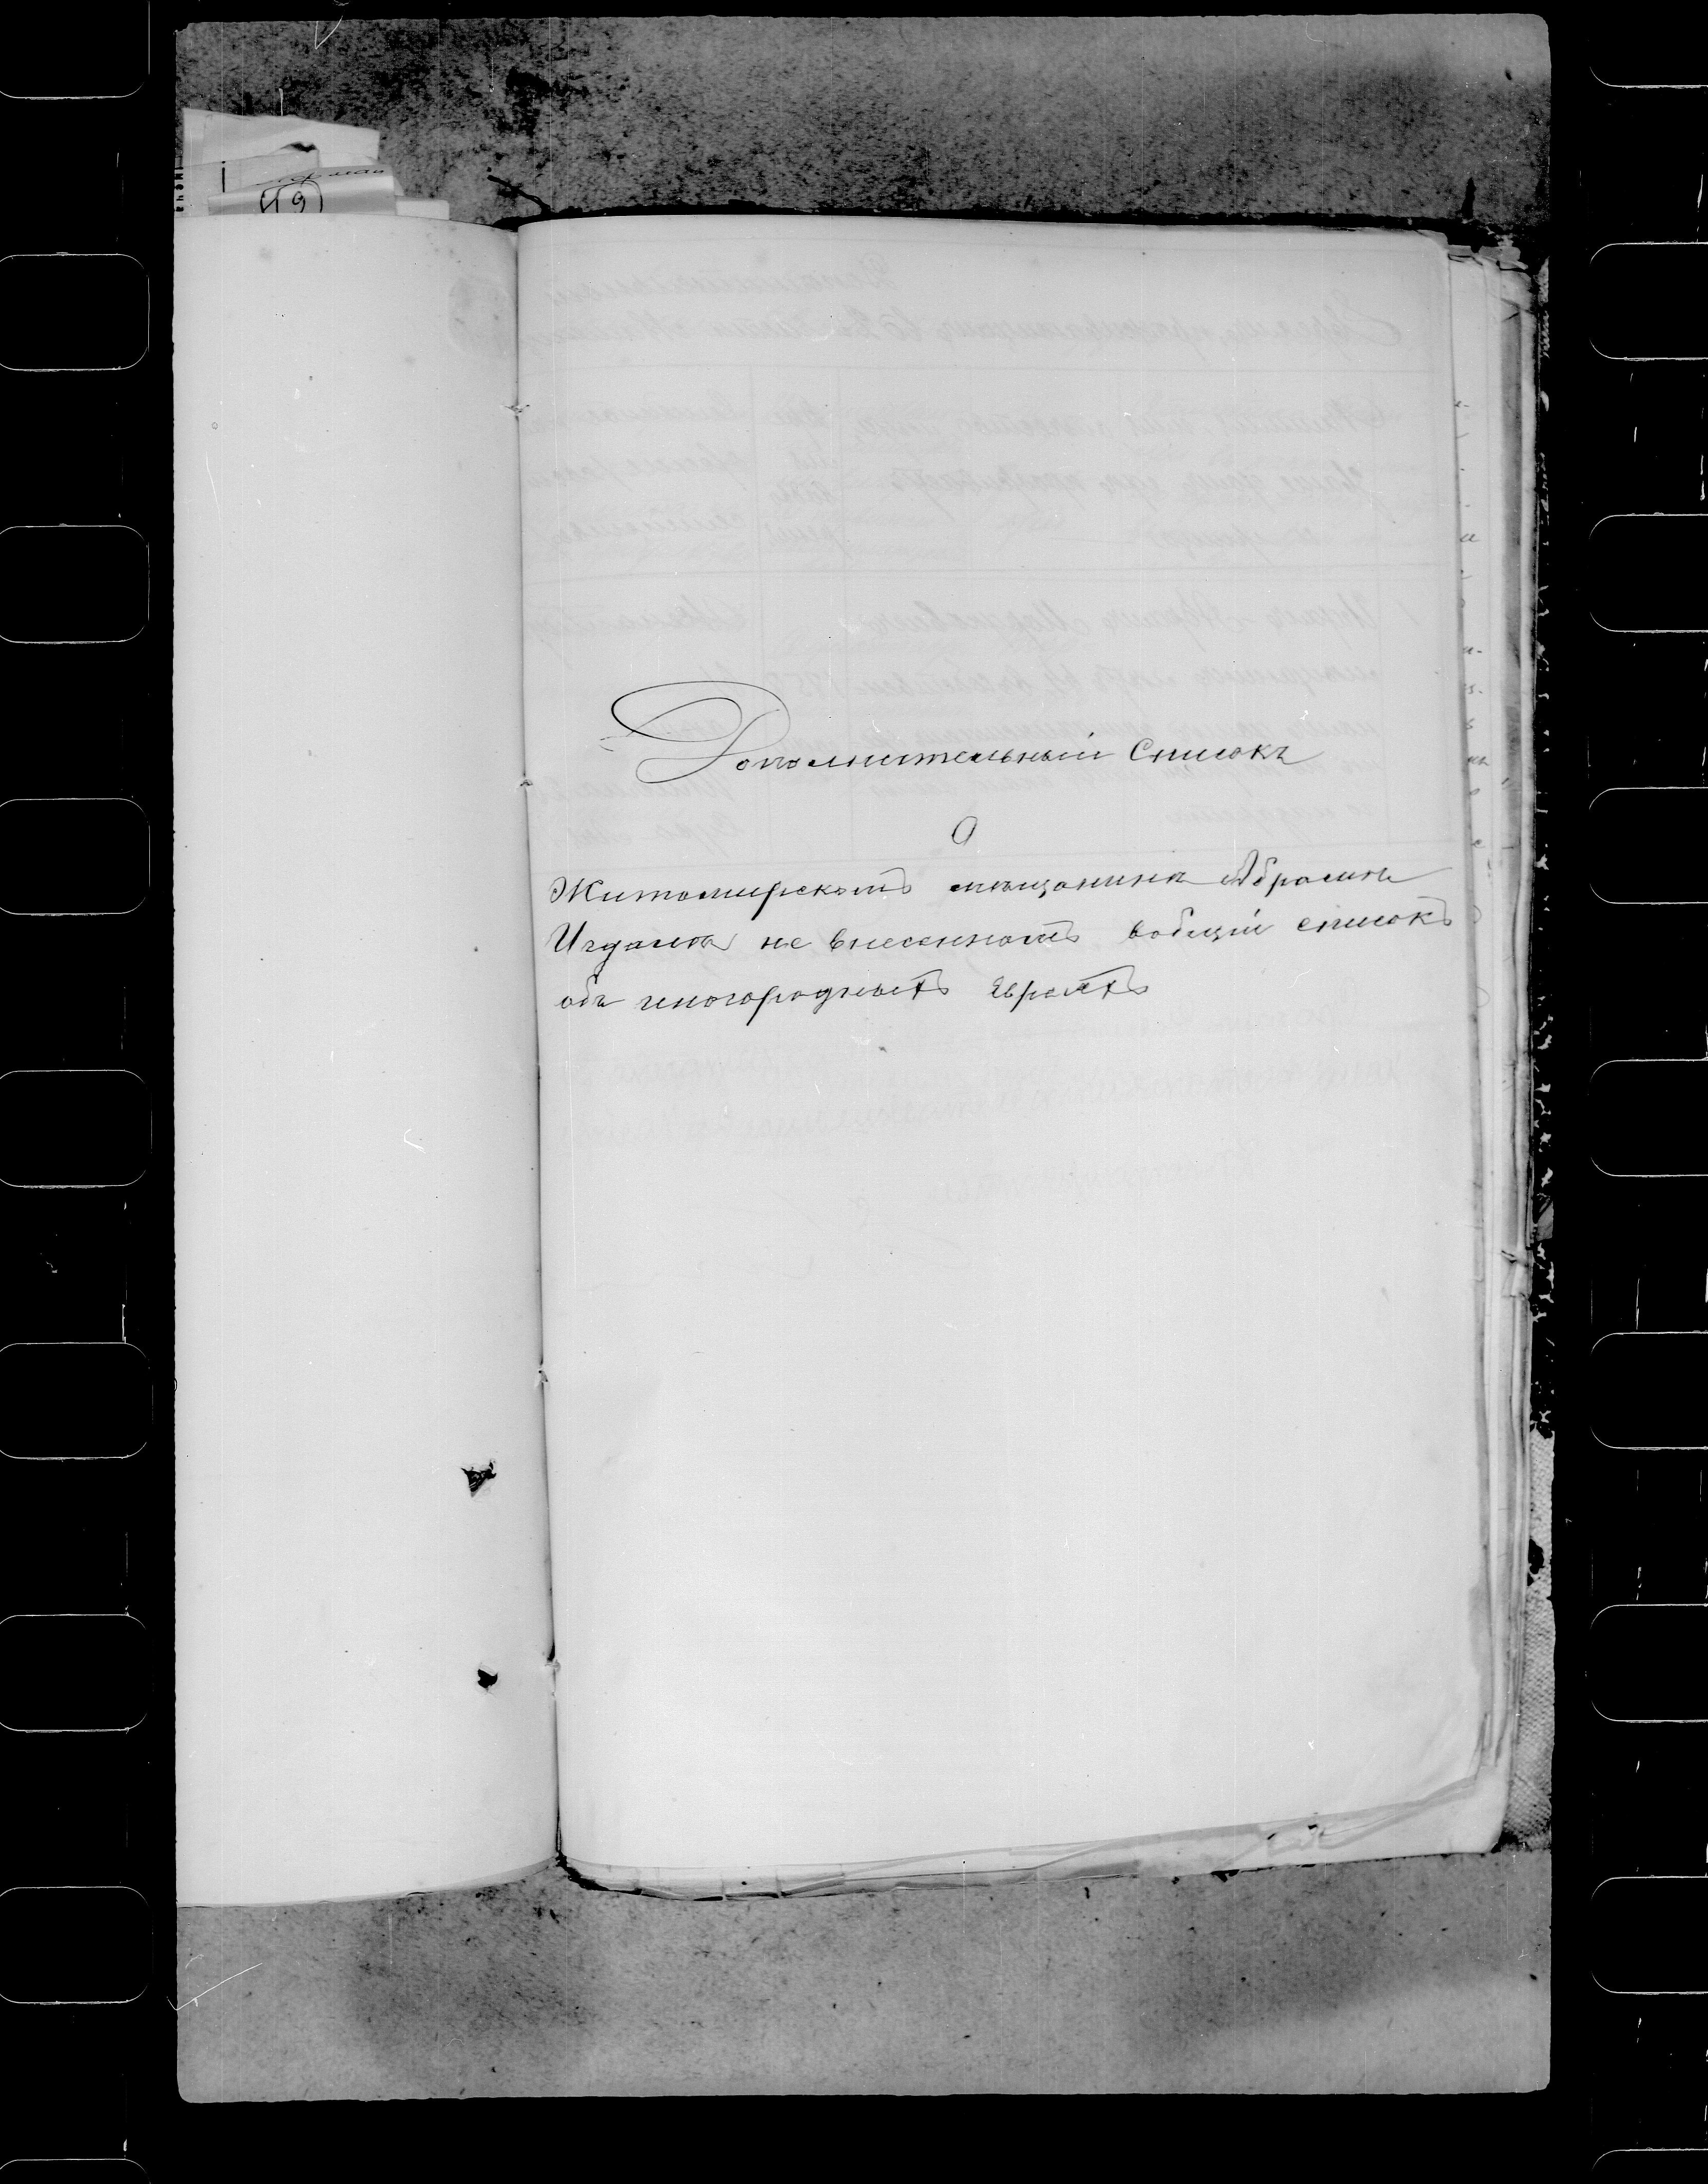 Дополнительный Списокъ
О
Житомирскомъ мѣщанинѣ Абрамѣ
не внесенномъ вобщій списокъ
объ иногородныхъ Евреяхъ